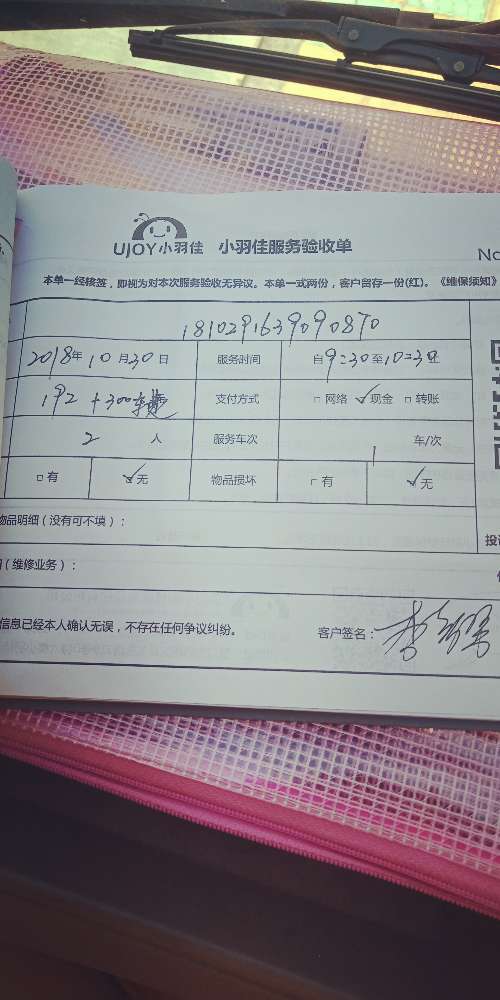 UJOY小羽佳 小羽佳服务验收单
No
本单一经核签,即视为对本次服务验收无异议。本单一式两份,客户留存一份(红)。《维保须知》
181029163909 0870
2018年10月30日 服务时间 自9:30至10:30
192+300车费 支付方式 □网络 ☑现金 □转账
2人 服务车次 1车/次
□有 ☑无 物品损坏 □有 ☑无
物品明细(没有可不填):
(维修业务):
信息已经本人确认无误,不存在任何争议纠纷。 客户签名: